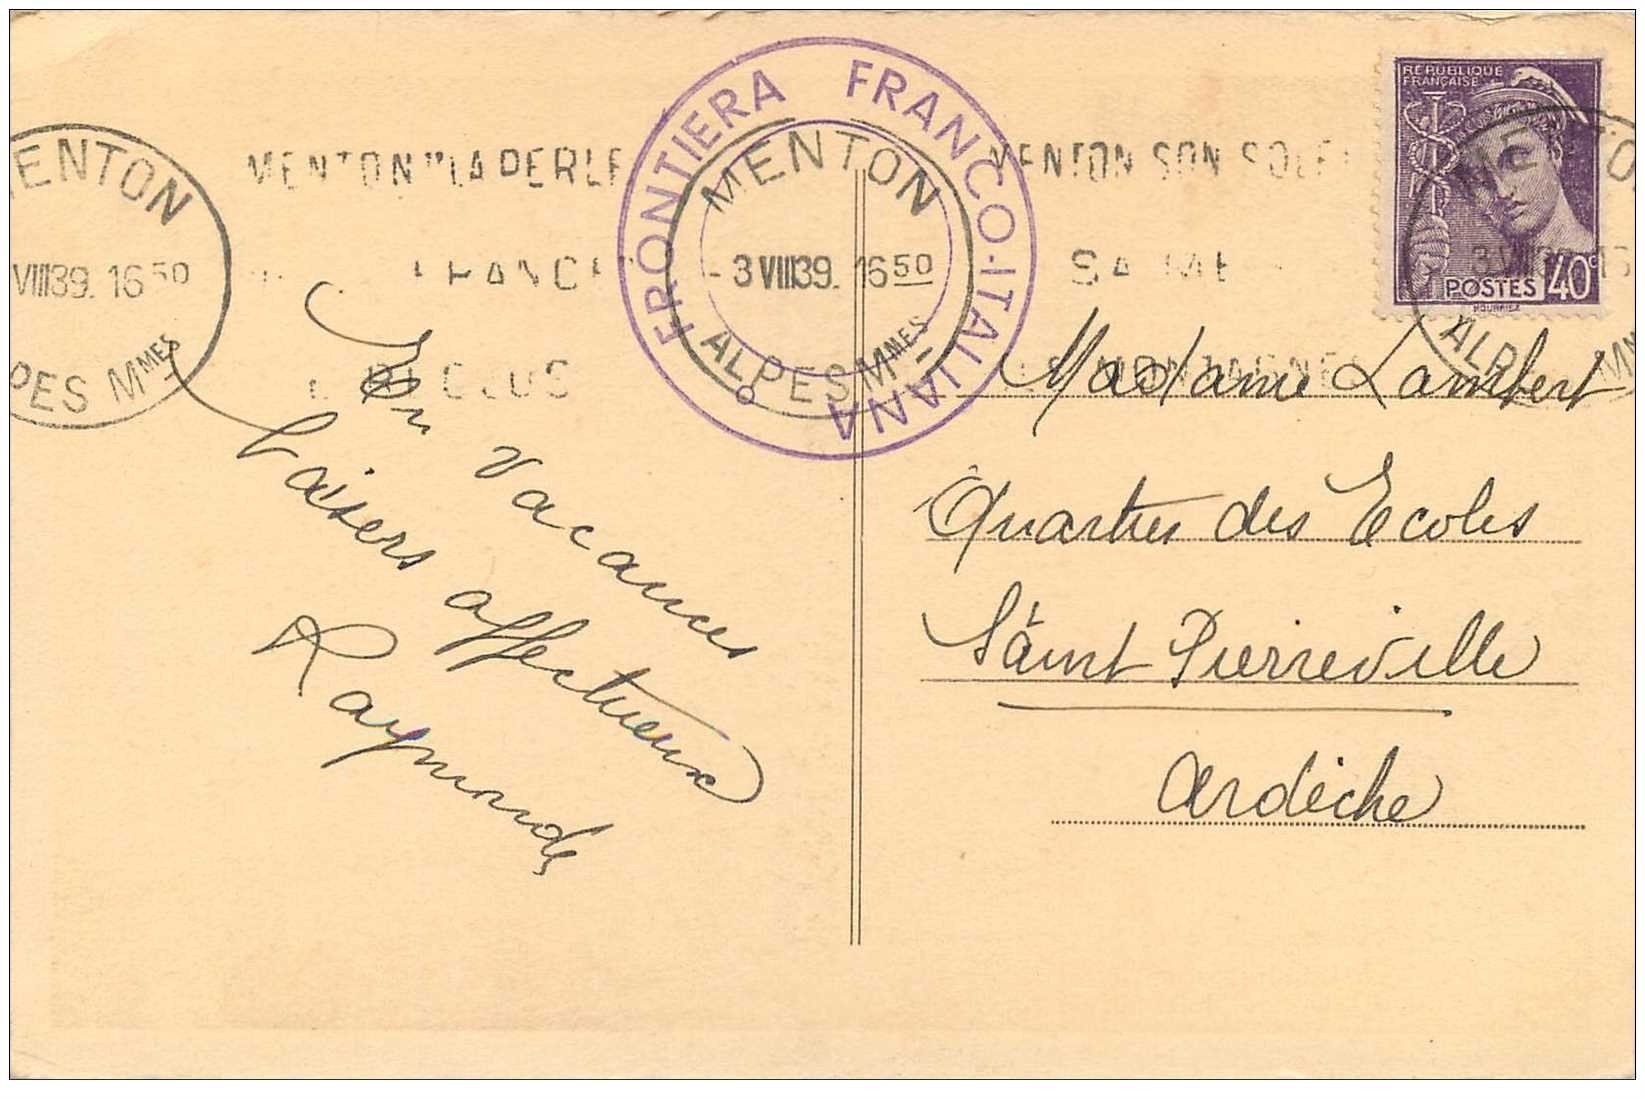 MENTON
VIII39. 16 50
ALPES Mmes
MENTON "LA PERLE
FRANCE
FRONTIERA FRANCO-ITALIANA
MENTON
- 3 VIII39. 16 50
ALPES Mmes
MENTON SON SOLEIL
SA MER
RÉPUBLIQUE
FRANÇAISE
POSTES 40c
En vacances
baisers affectueux
Raymonde
Madame Lambert
Quartier des Ecoles
Saint Pierreville
Ardèche